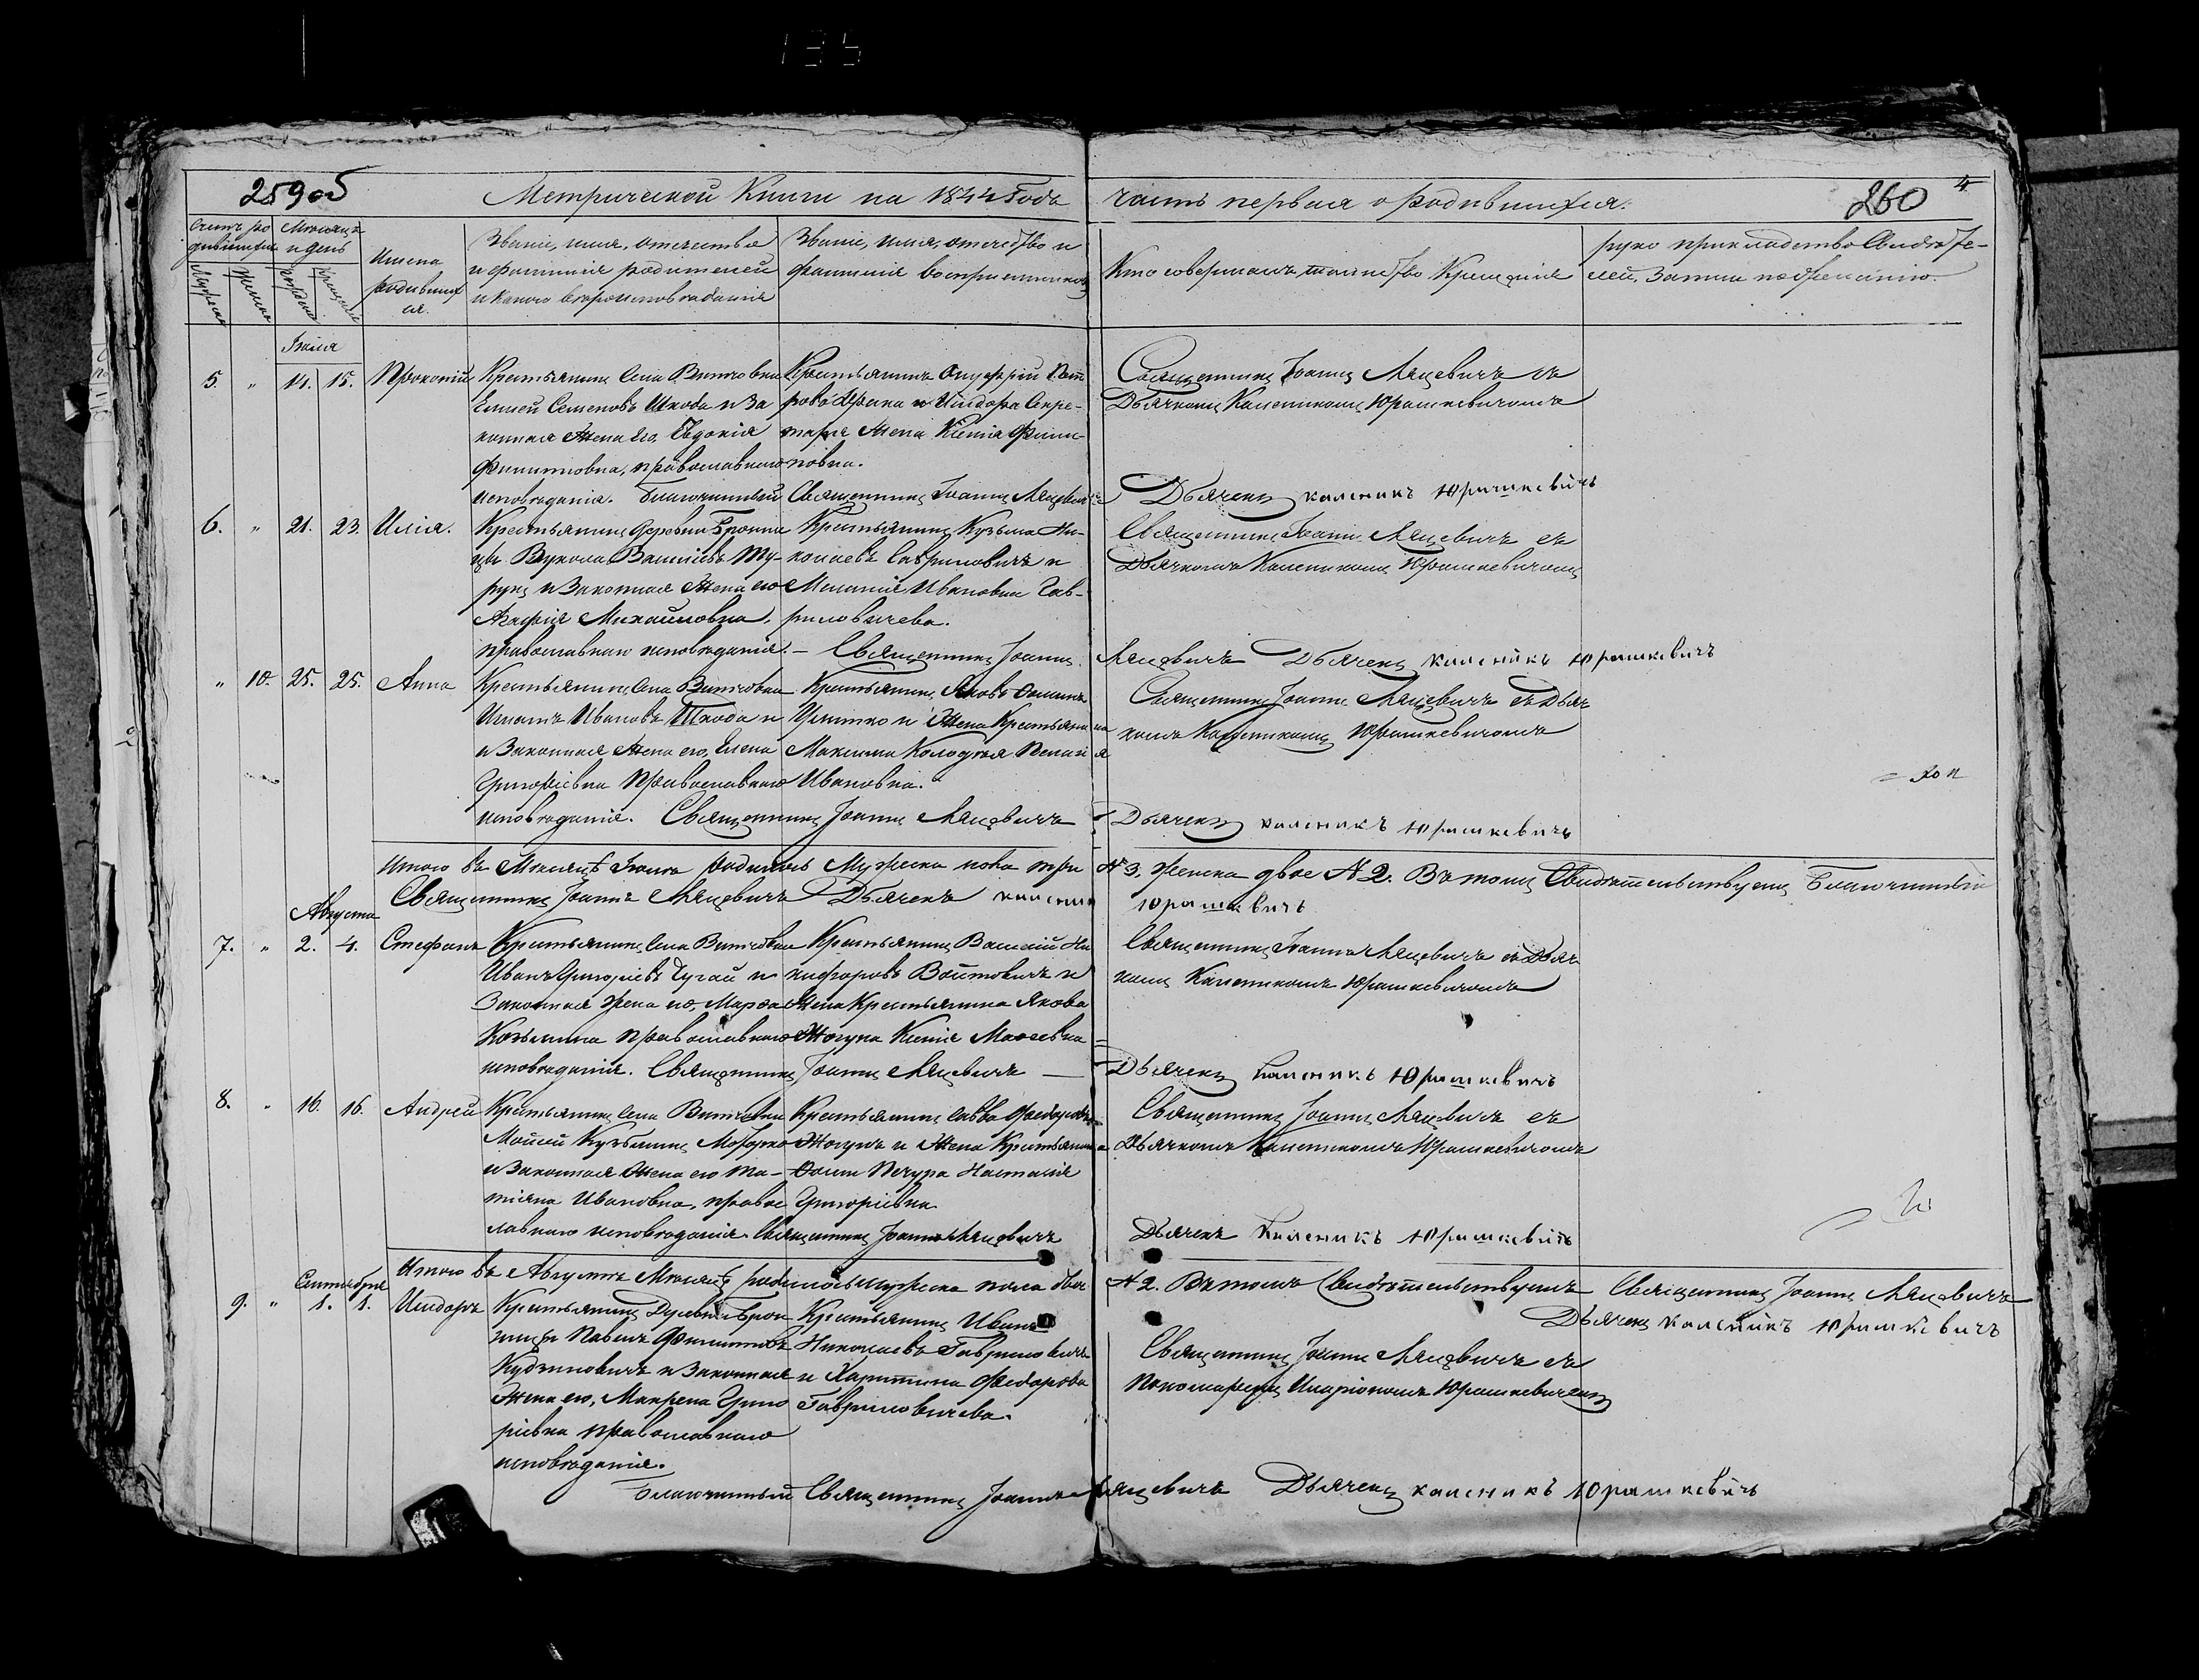 135
259 об
Метрической Книги на 1844 года
часть первая о родившихся.
260
4
Счетъ ро
дившихся
Мужеска
Женска
Месяцъ
и день
рожденія
крещенія
Имена
родивших
ся.
Званіе, имя, отечество
и фамилія родителей
и какого вѣроисповѣданія
Званіе, имя, отечество и
фамилія воспріемниковъ
Кто совершалъ таинство Крещенія
руко прикладство Свидѣте-
лей, записи по желанію.
Іюля
5. " 14. 15. Прокопій
Крестьянинъ Села Витчовки
Елисей Семеновъ Шкода и За
конная Жена его Евдокія
Филиповна, православнаго
исповѣданія.
Крестьянинъ Онуфрій Пет
ровъ и Исидора Секре-
таря Жена Ксенія Фили-
повна.
Священникъ Іоаннъ Мацевичъ съ
Дьячкомъ Каленикомъ Юрашкевичомъ
Благочинный Священникъ Іоаннъ Мацевичъ
Дьячекъ каленикъ Юрашкевичъ
6. " 21. 23. Илія.
Крестьянинъ Деревни Бронни
цы Вукола Васильевъ Ту-
рукъ и Законная Жена его
Агафія Михайловна,
православнаго исповѣданія. –
Крестьянинъ Кузьма Ни-
колаевъ Гавриловичъ и
Меланія Ивановна Гав-
риловичева.
Священникъ Іоаннъ Мацевичъ съ
Дьячкомъ Каленикомъ Юрашкевичомъ
Священникъ Іоаннъ Мацевичъ Дьячекъ каленикъ Юрашкевичъ
" 10. 25. 25. Анна
Крестьянинъ Села Витчовки
Игнатъ Ивановъ Шкода и
и Законная Жена его, Елена
Григоріевна Православнаго
исповѣданія.
Крестьянинъ Яковъ
и Жена Крестьянина
Максима Колодѣя Пелагія
Ивановна.
Священникъ Іоаннъ Мацевичъ съ Дьяч
комъ Каленикомъ Юрашкевичомъ
Священникъ Іоаннъ Мацевичъ
Дьячекъ каленикъ Юрашкевичъ
Итого въ Месяцѣ Іюлѣ родилось Мужеска пола три № 3. Женска двое № 2. Въ томъ Свидѣтельствуемъ Благочинный
Священникъ Іоаннъ Мацевичъ Дьячекъ каленикъ Юрашкевичъ
Августа
7. " 2. 4. Стефанъ
Крестьянинъ Села Витчовки
Иванъ Григоріевъ Чугай и
Законная Жена его, Марфа
Козьмина православнаго
исповѣданія.
Крестьянинъ Василій Ни
кифоровъ Войтовичъ и
Жена Крестьянина Якова
Жогуна Ксенія Моѵсеевна
Священникъ Іоаннъ Мацевичъ съ Дьяч
комъ Каленикомъ Юрашкевичомъ
Священникъ Іоаннъ Мацевичъ —
Дьячекъ каленикъ Юрашкевичъ
8. " 16. 16. Андрей
Крестьянинъ Села Витчовки
Мойсей Кузьминъ
и Законная Жена его Та-
тіяна Ивановна, право
славнаго исповѣданія.
Крестьянинъ Савва Федоровъ
Жогунъ и Жена Крестьянина
Фомы Печура Настасія
Григоріевна
Священникъ Іоаннъ Мацевичъ съ
Дьячкомъ Каленикомъ Юрашкевичомъ
Священникъ Іоаннъ Мацевичъ
Дьячекъ каленикъ Юрашкевичъ
Итого въ Августѣ Месяцѣ родилось мужеска пола два № 2. Въ томъ Свидѣтельствуемъ Священникъ Іоаннъ Мацевичъ
Дьячекъ каленикъ Юрашкевичъ
Сентября
9. " 1. 1. Исидоръ
Крестьянинъ Деревни Брон
ницы Павелъ Филиповъ
Кудзиновичъ и Законная
Жена его, Макрена Григо
ріевна православнаго
исповѣданія.
Крестьянинъ Иванъ
Николаевъ Гавриловичъ
и Харитина Федорова
Гавриловичева.
Священникъ Іоаннъ Мацевичъ съ
Пономаремъ Иларіономъ Юрашкевичемъ
Благочинный Священникъ Іоаннъ Мацевичъ Дьячекъ каленикъ Юрашкевичъ